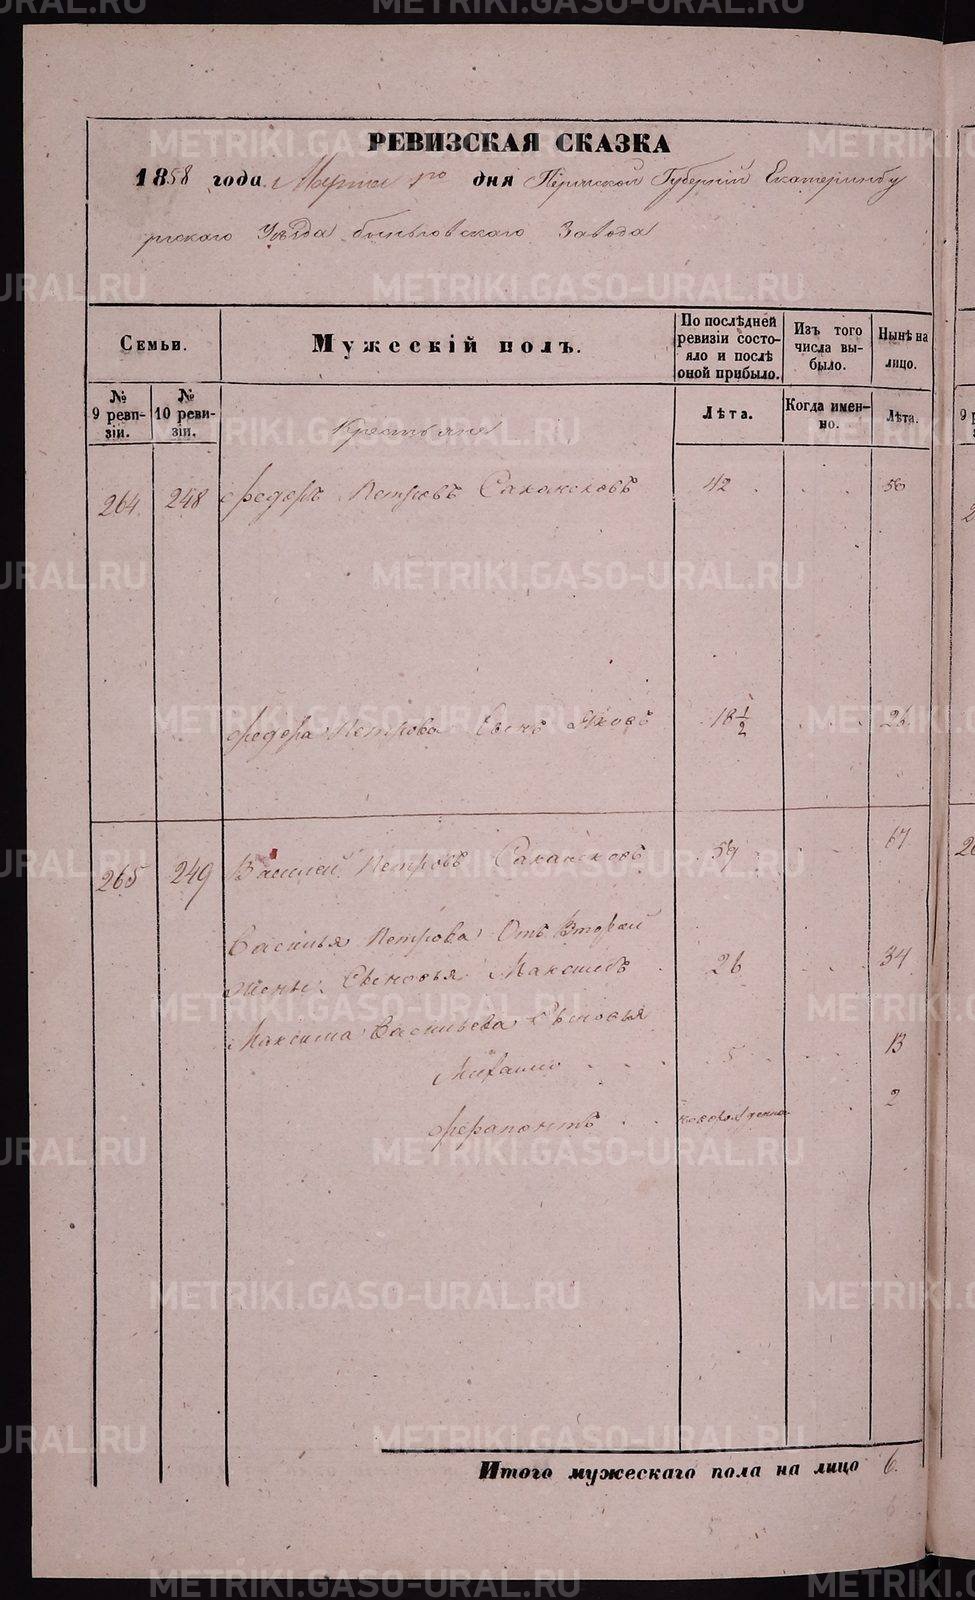 РЕВИЗСКАЯ СКАЗКА
1858 года Марта 1го дня Пермской Губернии Екатеринбу
ргскаго Уѣзда Быньговскаго Завода
Семьи.
Мужескій полъ.
По послѣдней ревизіи состояло и послѣ оной прибыло.
Изъ того числа выбыло.
Нынѣ на лицо.
№ 9 ревизіи.
№ 10 ревизіи.
Лѣта.
Когда именно.
Лѣта.
Крестьяне
264 248 Федоръ Петровъ Сакансковъ 42 50
Федора Петрова Сынъ Яковъ 18 1/2 26
265 249 Василей Петровъ Сакансковъ 59 67
Василья Петрова Отъ Второй
Жены Сыновья Максимъ 26 34
Максима Васильева Сыновья
Михаило 5 13
Ферапонтъ новорожденна 2
Итого мужескаго пола на лицо 6
METRIKI.GASO-URAL.RU